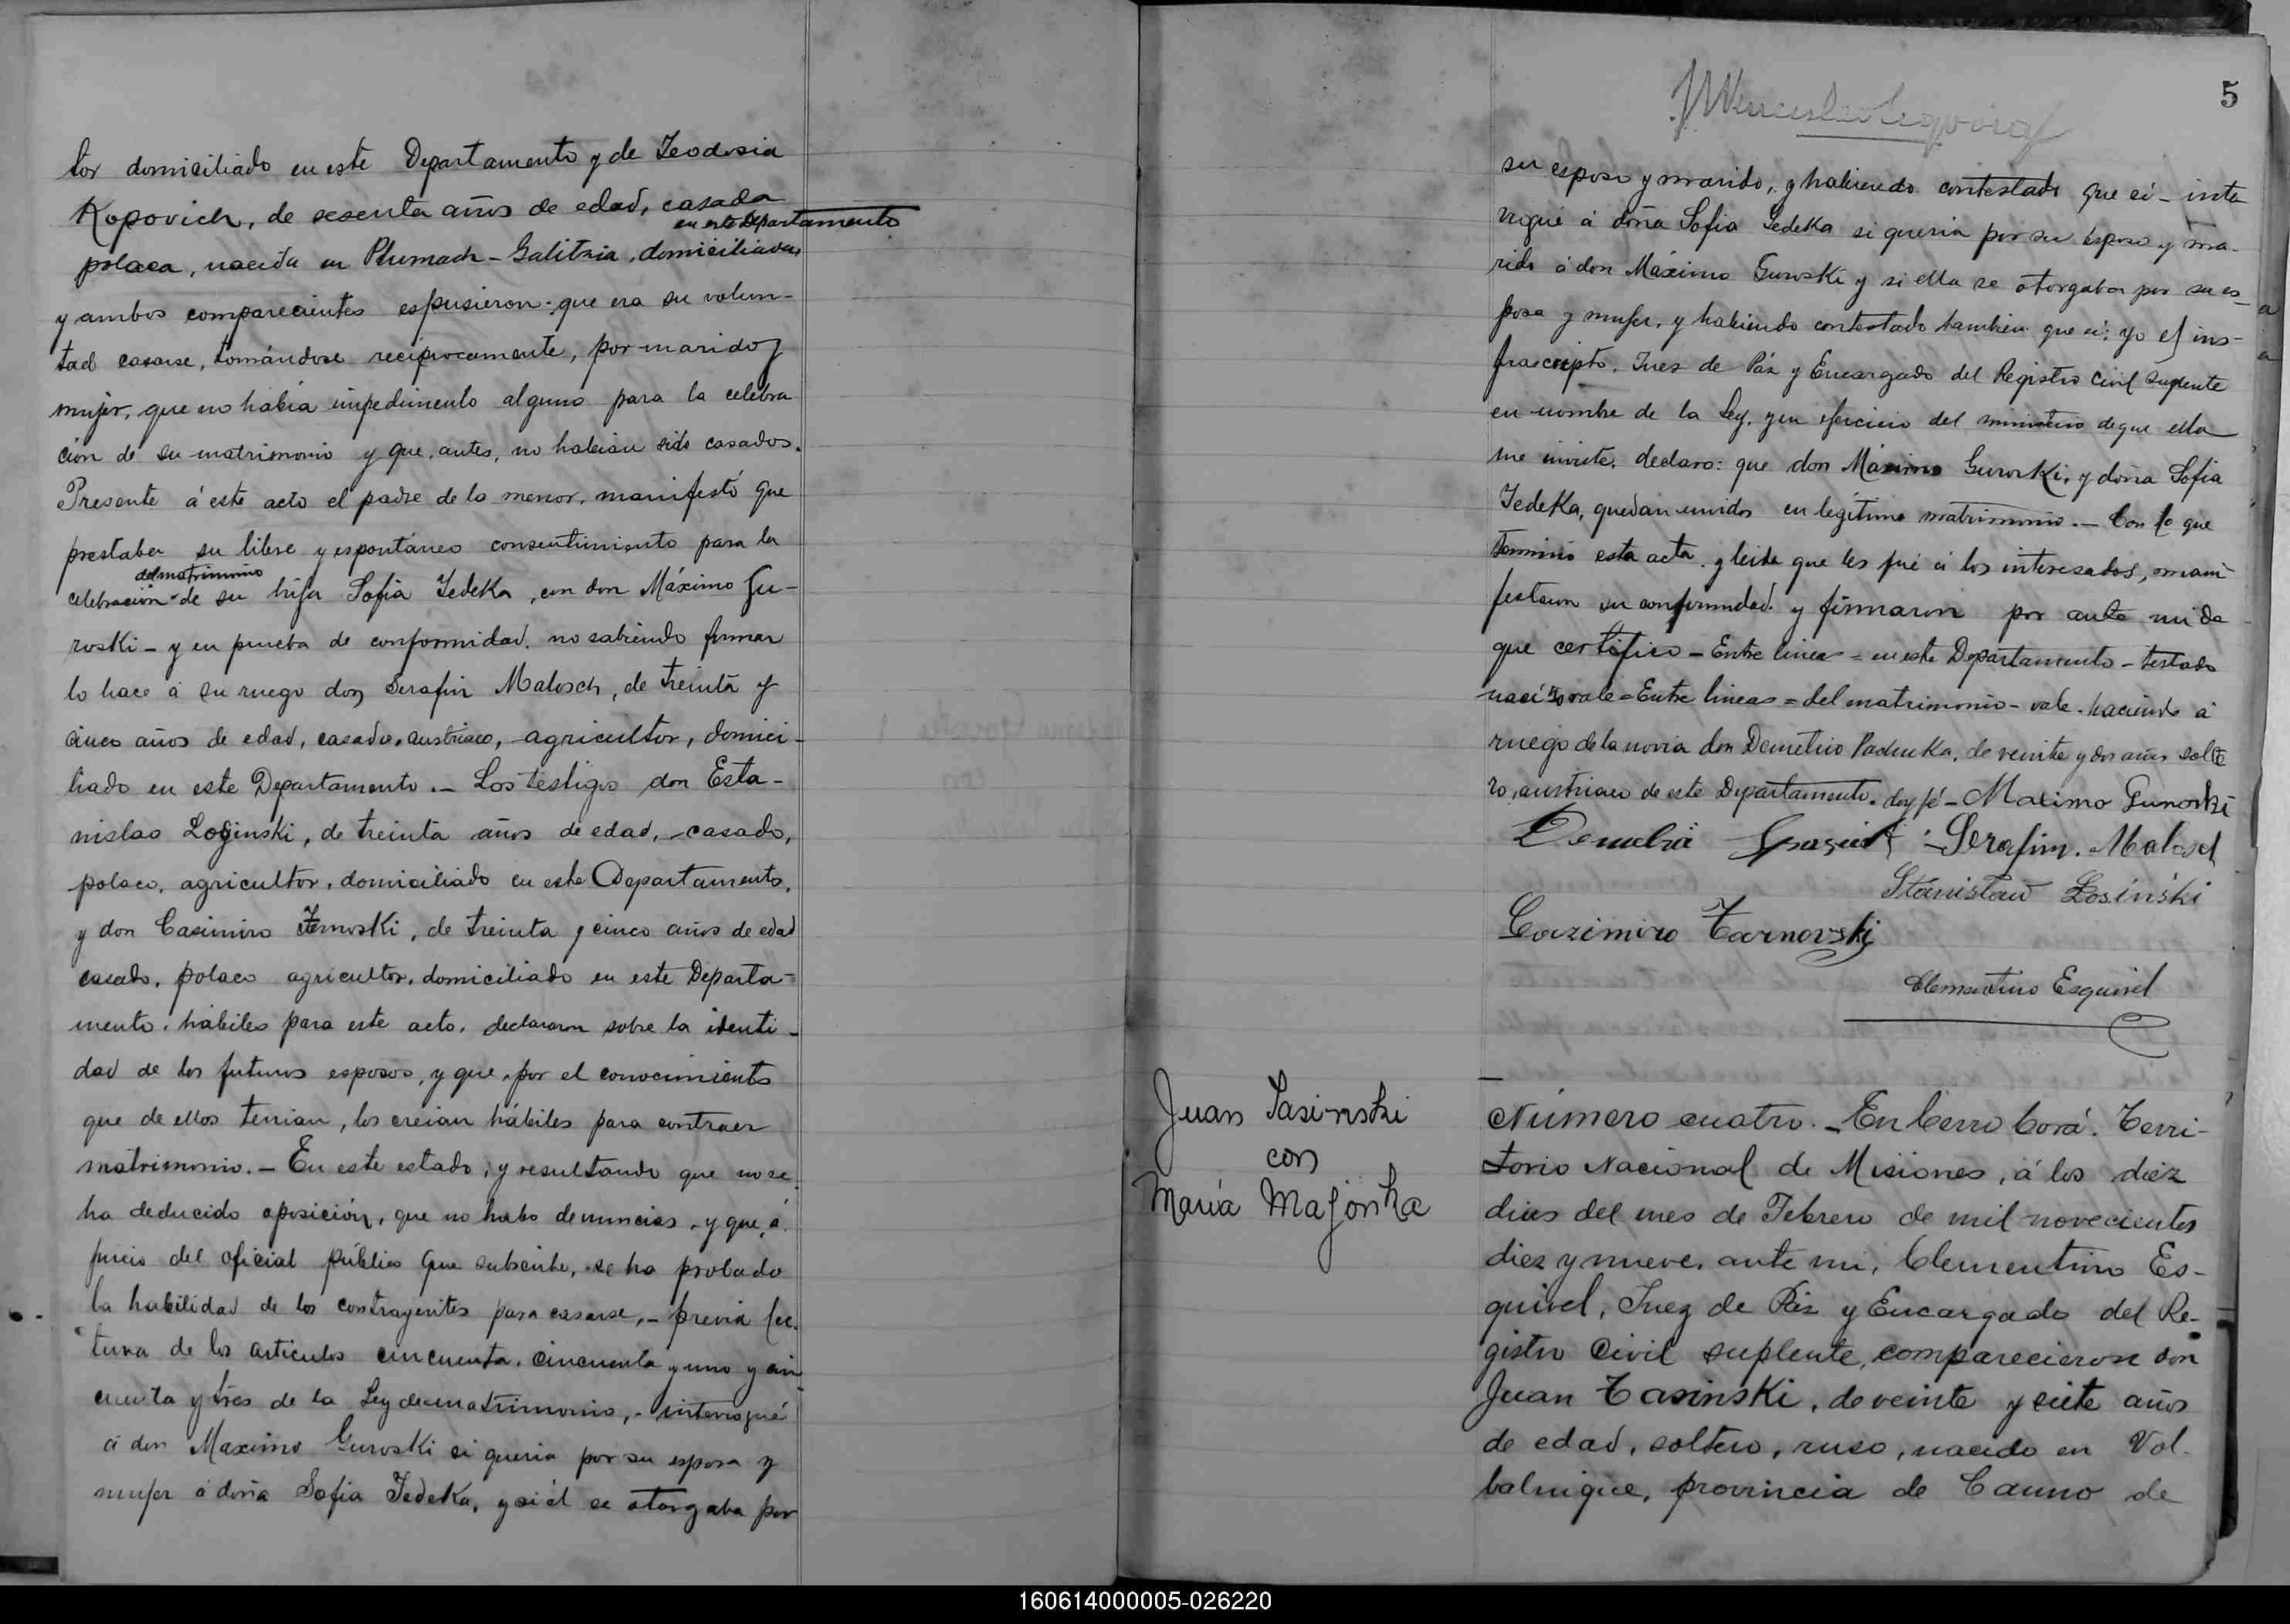 tor domiciliado en este Departamento y de Teodosia
Kopovich, de sesenta años de edad, casada
en este Departamento
polaca, nacida en Plumach - Galitzia, domiciliada
y ambos comparecientes espusieron: que era su volun-
tad casarse, tomándose reciprocamente, por marido y
mujer, que no habia impedimento alguno para la celebra
ción de su matrimonio y que, antes, no habian sido casados.
Presente á este acto el padre de la menor, manifestó que
prestaba su libre y espontáneo consentimiento para la
del matrimonio
celebración de su hija Sofia Tedeka, con don Máximo Gu-
roski - y en prueba de conformidad, no sabiendo firmar
lo hace á su ruego don Serafin Malosch, de treinta y
cinco años de edad, casado, austriaco, agricultor, domici-
liado en este Departamento. - Los testigos don Esta-
nislao Loginski, de treinta años de edad, casado,
polaco, agricultor, domiciliado en este Departamento,
y don Casimiro, de treinta y cinco años de edad
casado, polaco agricultor, domiciliado en este Departa-
mento, hábiles para este acto, declararon sobre la identi-
dad de los futuros esposos, y que, por el conocimiento
que de ellos tenian, los creian hábiles para contraer
matrimonio. - En este estado, y resultando que no se
ha deducido oposición, que no hubo denuncias, y que, á
juicio del oficial público que subscribe, se ha probado
la habilidad de los contrayentes para casarse, - previa lec-
tura de los articulos cincuenta, cincuenta y uno y cin
cuenta y tres de la Ley de matrimonio, - interrogué
á don Maximo Guroski si queria por su esposa y
mujer á doña Sofia Tedeka, y si él se otorgaba por
5
su esposo y marido, y habiendo contestado que si - inte
rrogué á doña Sofia Tedeka si queria por su esposo y ma-
rido á don Máximo Guroski y si ella se otorgaba por su es-
posa y mujer, y habiendo contestado tambien que si: yo el ins-
frascripto, Juez de Páz y Encargado del Registro Civil suplente
en nombre de la Ley, y en ejercicio del ministerio de que ella
me inviste, declaro: que don Máximo Guroski, y doña Sofia
Tedeka, quedan unidos en legítimo matrimonio. - Con lo que
terminó esta acta, y leida que les fué á los interesados, mani
festaron su conformidad y firmaron por ante mi de
que certifico - Entre lineas = en este Departamento - testado
vale = Entre lineas = del matrimonio - vale. haciendo á
ruego de la novia don Demetrio Paduka, de veinte y dos años solte
ro, austriaco de este Departamento. doy fé - Maximo Gunoski
Serafim. Malosch
Stanisław Łosiński
Cazimiro Tarnovski
Clementino Esquivel
Juan Tasinski
con
María Majonka
Número cuatro. - En Cerro Corá. Terri-
torio Nacional de Misiones, á los diez
dias del mes de Febrero de mil novecientos
diez y nueve, ante mi, Clementino Es-
quivel, Juez de Páz y Encargado del Re-
gistro Civil suplente, comparecieron don
Juan Tasinski, de veinte y siete años
de edad, soltero, ruso, nacido en Vol-
balnique, provincia de Cauno de
160614000005-026220